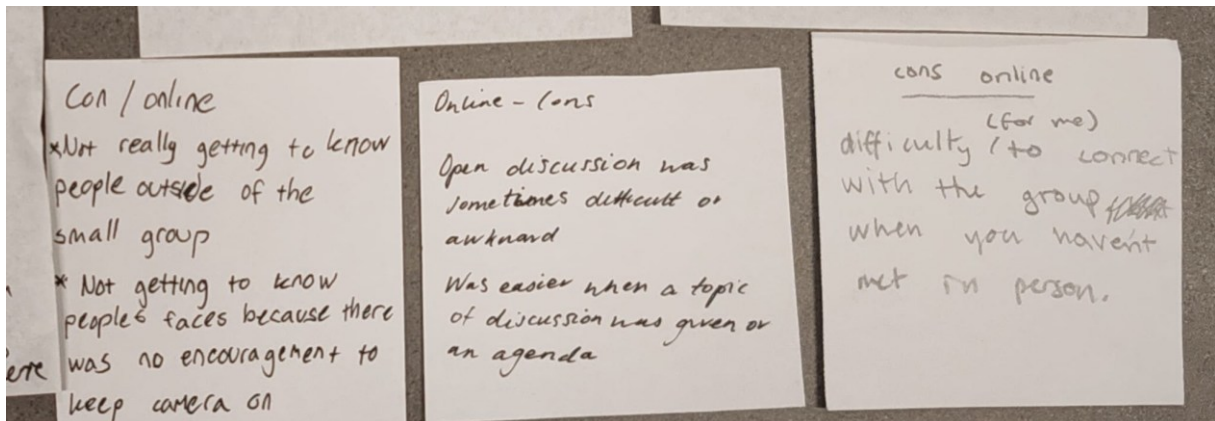 Con / online
*Not really getting to know
people outside of the
small group
* Not getting to know
peoples faces because there
was no encouragement to
keep camera on
Online - Cons
Open discussion was
sometimes difficult or
awkward
Was easier when a topic
of discussion was given or
an agenda
cons online
(for me)
difficulty / to connect
with the group
when you haven't
met in person.